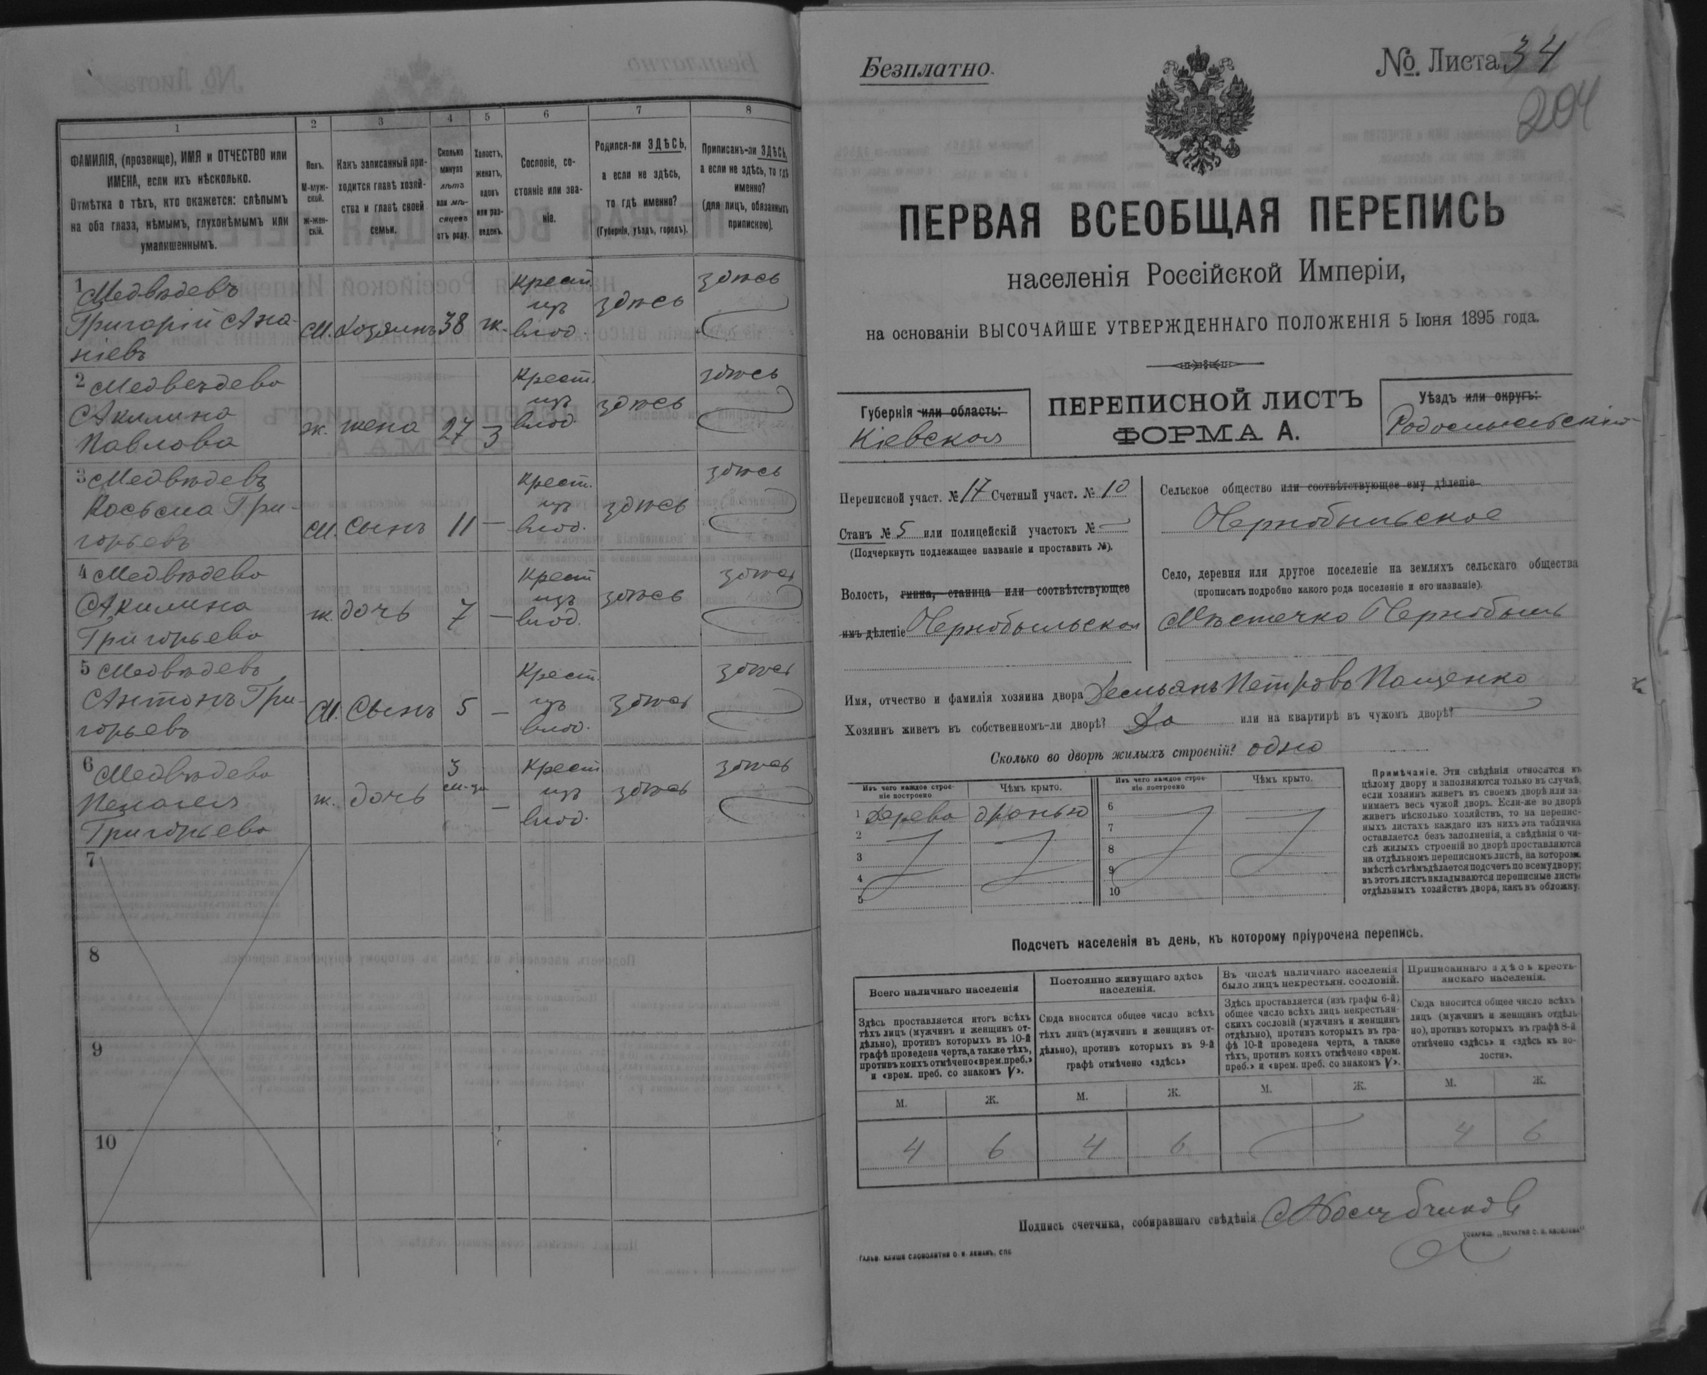 1
2
3
4
5
6
7
8
ФАМИЛІЯ, (прозвище), ИМЯ и ОТЧЕСТВО или
ИМЕНА, если ихъ нѣсколько.
Отмѣтка о тѣхъ, кто окажется: слѣпымъ
на оба глаза, нѣмымъ, глухонѣмымъ или
умалишеннымъ.
Полъ.
М-муж-
ской.
Ж-жен-
скій.
Какъ записанный при-
ходится главѣ хозяй-
ства и главѣ своей
семьи.
Сколько
минуло
лѣтъ
или мѣ-
сяцевъ
отъ роду.
Холостъ,
женатъ,
вдовъ
или раз-
веденъ.
Сословіе, со-
стояніе или зва-
ніе.
Родился-ли ЗДѢСЬ,
а если не здѣсь,
то гдѣ именно?
(Губернія, уѣздъ, городъ).
Приписанъ-ли ЗДѢСЬ,
а если не здѣсь, то гдѣ
именно?
(для лицъ, обязанныхъ
припискою).
1 Медвѣдевъ
Григорій Ана-
ніевъ
М. Хозяинъ 38 ж.
Крест.
изъ
влад.
здѣсь
здѣсь
2 Медведева
Акилина
Павлова
ж. жена 27 З
Крест.
изъ
влад.
здѣсь
здѣсь
3 Медвѣдевъ
Косьма Гри-
горьевъ
М. Сынъ 11 —
Крест.
изъ
влад.
здѣсь
здѣсь
4 Медвѣдева
Акилина
Григорьева
ж. дочь 7 —
Крест
изъ
влад.
здѣсь
здѣсь
5 Медвѣдевъ
Антонъ Гри-
горьевъ
М. Сынъ 5 —
Крест.
изъ
влад.
здѣсь
здѣсь
6 Медвѣдева
Пелагея
Григорьева
ж. дочь 3
—
Крест
изъ
влад.
здѣсь
здѣсь
7
8
9
10
Безплатно.
№ Листа 34
204
ПЕРВАЯ ВСЕОБЩАЯ ПЕРЕПИСЬ
населенія Россійской Имперіи,
на основаніи ВЫСОЧАЙШЕ УТВЕРЖДЕННАГО ПОЛОЖЕНІЯ 5 Іюня 1895 года.
Губернія или область:
Кіевская
ПЕРЕПИСНОЙ ЛИСТЪ
ФОРМА А.
Уѣздъ или округъ:
Радомысльскій
Переписной участ. № 17 Счетный участ. № 10
Станъ № 5 или полицейскій участокъ № —
(Подчеркнуть подлежащее названіе и проставить №).
Волость, гмина, станица или соотвѣтствующее
имъ дѣленіе Чернобыльская
Сельское общество или соотвѣтствующее ему дѣленіе
Чернобыльское
Село, деревня или другое поселеніе на земляхъ сельскаго общества
(прописать подробно какого рода поселеніе и его названіе)
Мѣстечко Чернобыль
Имя, отчество и фамилія хозяина двора Демьянъ Петровъ Пащенко
Хозяинъ живетъ в собственномъ-ли дворѣ? Да или на квартирѣ въ чужомъ дворѣ?
Сколько во дворѣ жилыхъ строеній? одно
Изъ чего каждое строе-
ніе построено
Чѣмъ крыто.
Изъ чего каждое строе-
ніе построено
Чѣмъ крыто.
1 Дерева дранью
2
3
4
5
6
7
8
9
10
Примѣчаніе. Эти свѣдѣнія относятся къ
цѣлому двору и заполняются только въ случаѣ,
если хозяинъ живетъ въ своемъ дворѣ или за-
нимаетъ весь чужой дворъ. Если-же во дворѣ
живетъ нѣсколько хозяйствъ, то на перепис-
ныхъ листахъ каждаго изъ нихъ эта табличка
оставляется безъ заполненія, а свѣдѣнія о чи-
слѣ жилыхъ строеній во дворѣ проставляются
на отдѣльномъ переписномъ листѣ, на которомъ
вмѣстѣ съ тѣмъ дѣлается подсчетъ по всему двору;
въ этотъ листъ вкладываются переписные листы
отдѣльныхъ хозяйствъ двора, какъ въ обложку.
Подсчетъ населенія въ день, къ которому пріурочена перепись.
Всего наличнаго населенія
Постоянно живущаго здѣсь
населенія.
Въ числѣ наличнаго населенія
было лицъ некрестьян. сословій.
Приписаннаго здѣсь кресть-
янскаго населенія.
Здѣсь проставляется итогъ всѣхъ
тѣхъ лицъ (мужчинъ и женщинъ от-
дѣльно), противъ которыхъ въ 10-й
графѣ проведена черта, а также тѣхъ,
противъ коихъ отмѣчено «врем. преб.»
и «врем. преб. со знакомъ V».
Сюда вносится общее число всѣхъ
тѣхъ лицъ (мужчинъ и женщинъ от-
дѣльно), противъ которыхъ въ 9-й
графѣ отмѣчено «здѣсь»
Здѣсь проставляется (изъ графы 6-й)
общее число всѣхъ лицъ некрестьян-
скихъ сословій (мужчинъ и женщинъ
отдѣльно), противъ которыхъ въ гра-
фѣ 10-й проведена черта, а также
тѣхъ, противъ коихъ отмѣчено «врем.
преб.» и «врем. преб. со знакомъ V».
Сюда вносится общее число всѣхъ
лицъ (мужчинъ и женщинъ отдѣль-
но), противъ которыхъ въ графѣ 8-й
отмѣчено «здѣсь» и «здѣсь въ во-
лости».
М. Ж. М. Ж. М. Ж. М. Ж.
4 6 4 6 4 6
Подпись счетчика, собиравшаго свѣдѣнія
ГАЛЬВ. КЛИШЕ СЛОВОЛИТНИ О. И. ЛЕМАНЪ, СПБ